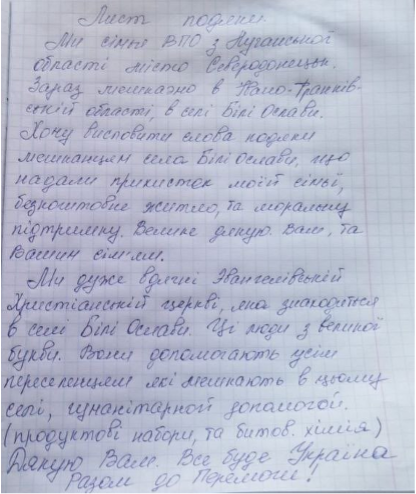 Лист подяки.
Ми сімья ВПО з Луганської
області місто Северодонецьк.
Зараз мешкаємо в Івано-Франків-
ській області, в селі Білі Ослави.
Хочу висловити слова подяки
мешканцям села Білі Ослави, що
надали прихисток моїй сімьї,
безкоштовне житло, та моральну
підтримку. Велике дякую Вам, та
Вашим сімьям.
Ми дуже вдячні Эвангелівській
Христіанській церкві, яка знаходиться
в селі Білі Ослави. Ці люди з великої
букви. Вони допомогають усім
переселенцям які мешкають в цьому
селі, гуманітарной допомогой.
(продуктові набори, та битов. хімія)
Дякую Вам. Все буде Україна
Разом до Перемоги!